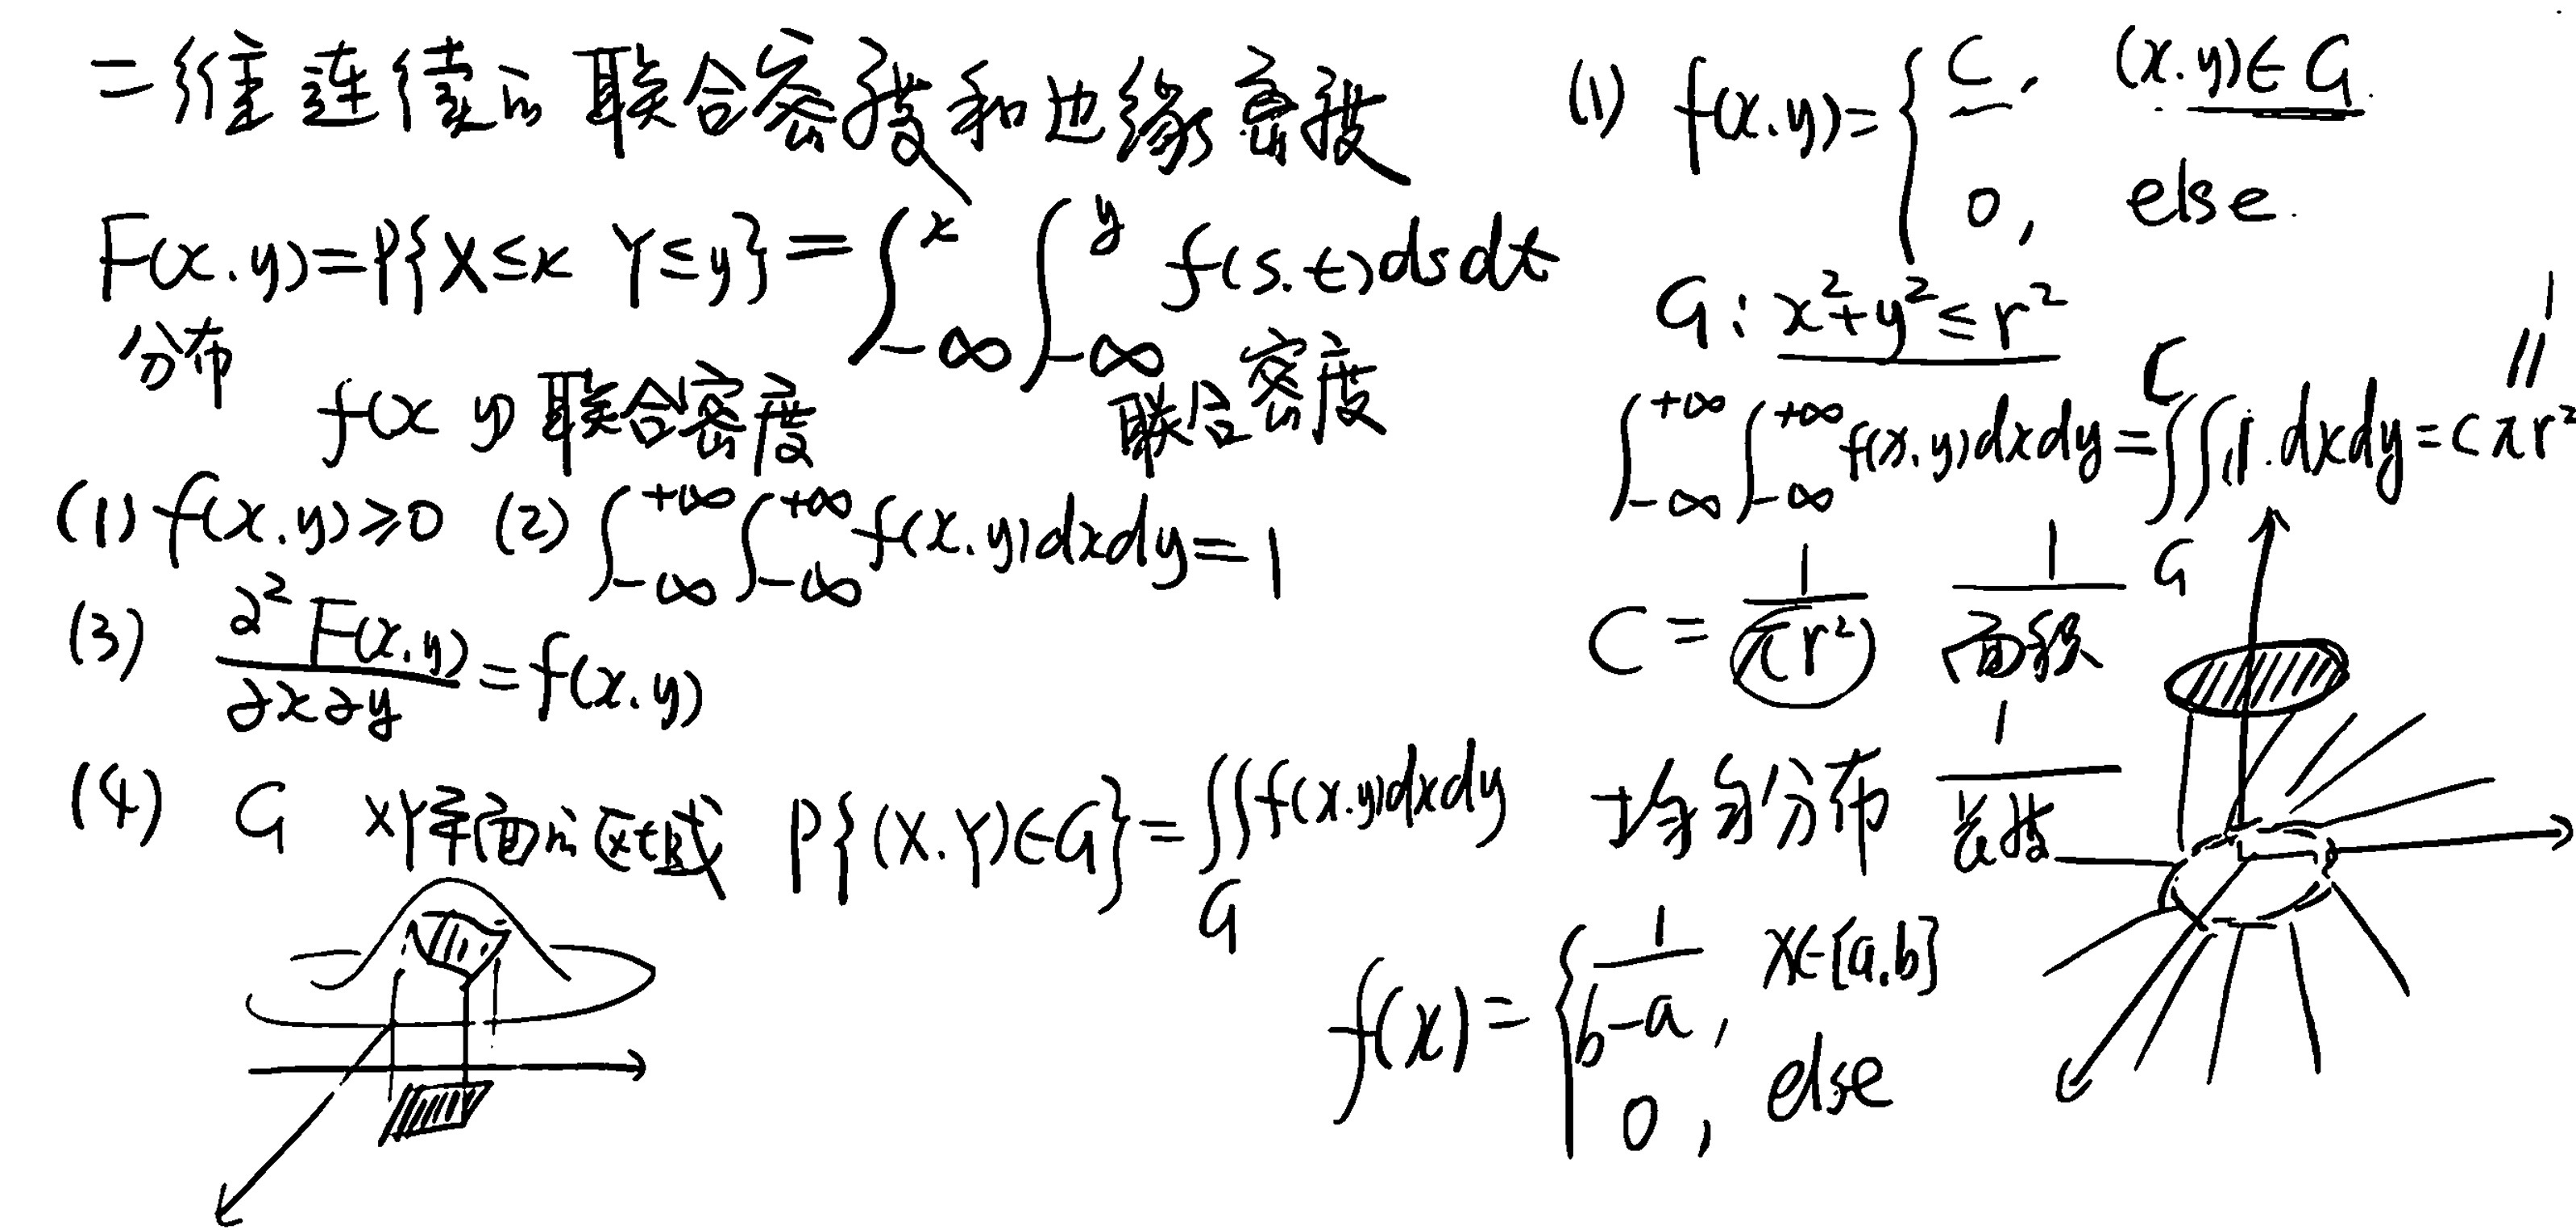 二维连续的联合密度和边缘密度
F(x.y)=P{X≤x Y≤y}=∫_{-∞}^{x}∫_{-∞}^{y} f(s.t)dsdt
分布 联合密度
f(x y) 联合密度
(1) f(x.y)≥0 (2) ∫_{-∞}^{+∞}∫_{-∞}^{+∞} f(x.y)dxdy=1
(3) ∂²F(x.y)/∂x∂y = f(x.y)
(4) G XY平面的区域 P{(X.Y)∈G}=∬_G f(x.y)dxdy
(1) f(x.y)={ C, (x.y)∈G
0, else.
G: x²+y²≤r²
∫_{-∞}^{+∞}∫_{-∞}^{+∞} f(x.y)dxdy = C∬_G 1.dxdy = cπr² = 1
C = 1/πr² 1/面积
均匀分布 1/长度
f(x)={ 1/b-a, x∈[a.b]
0, else